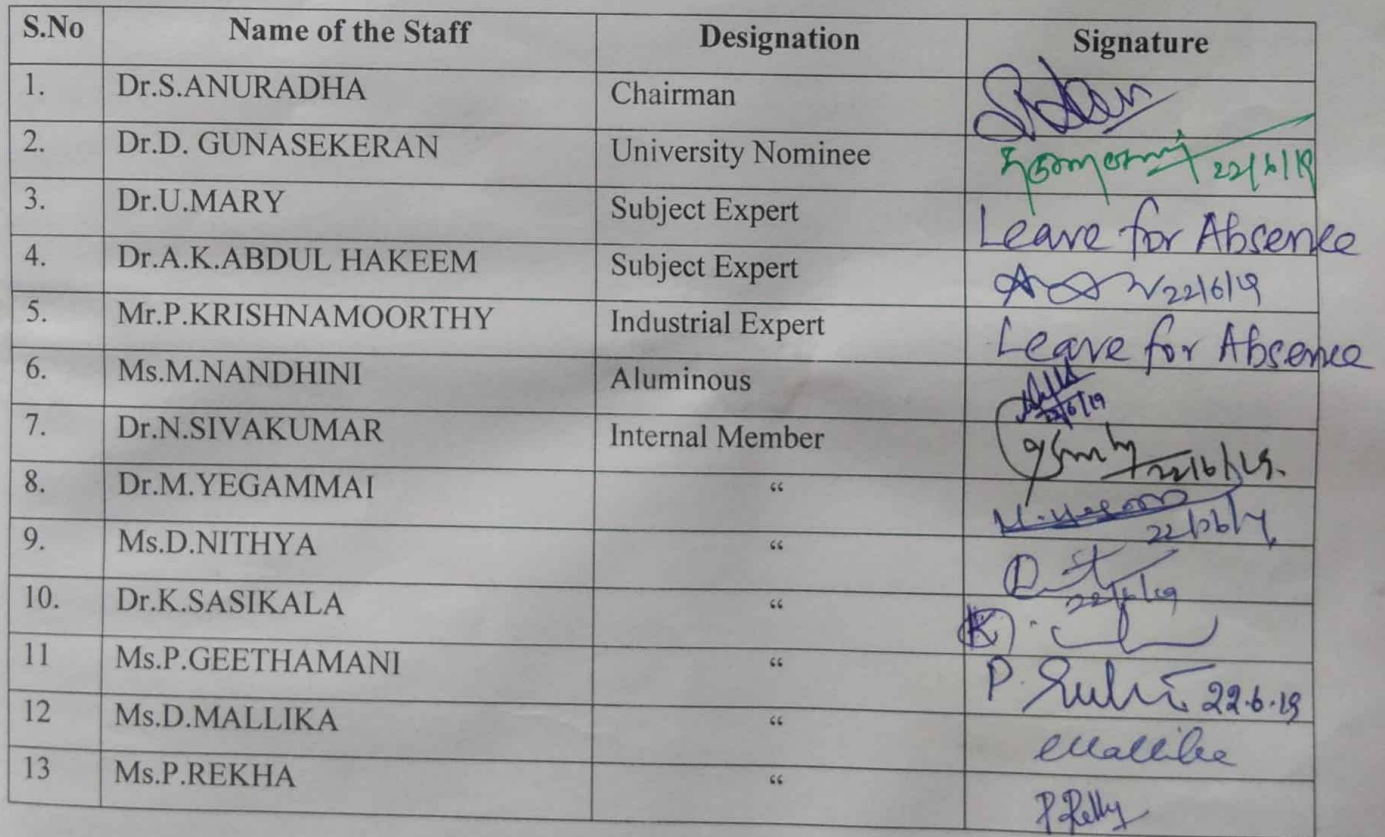 S.No Name of the Staff Designation Signature
1. Dr.S.ANURADHA Chairman
2. Dr.D. GUNASEKERAN University Nominee 22/6/19
3. Dr.U.MARY Subject Expert Leave for Absence
4. Dr.A.K.ABDUL HAKEEM Subject Expert 22/6/19
5. Mr.P.KRISHNAMOORTHY Industrial Expert Leave for Absence
6. Ms.M.NANDHINI Aluminous 22/6/19
7. Dr.N.SIVAKUMAR Internal Member 22/6/19.
8. Dr.M.YEGAMMAI “
9. Ms.D.NITHYA “ 22/6/19
10. Dr.K.SASIKALA “
11 Ms.P.GEETHAMANI “ 22.6.19
12 Ms.D.MALLIKA “
13 Ms.P.REKHA “